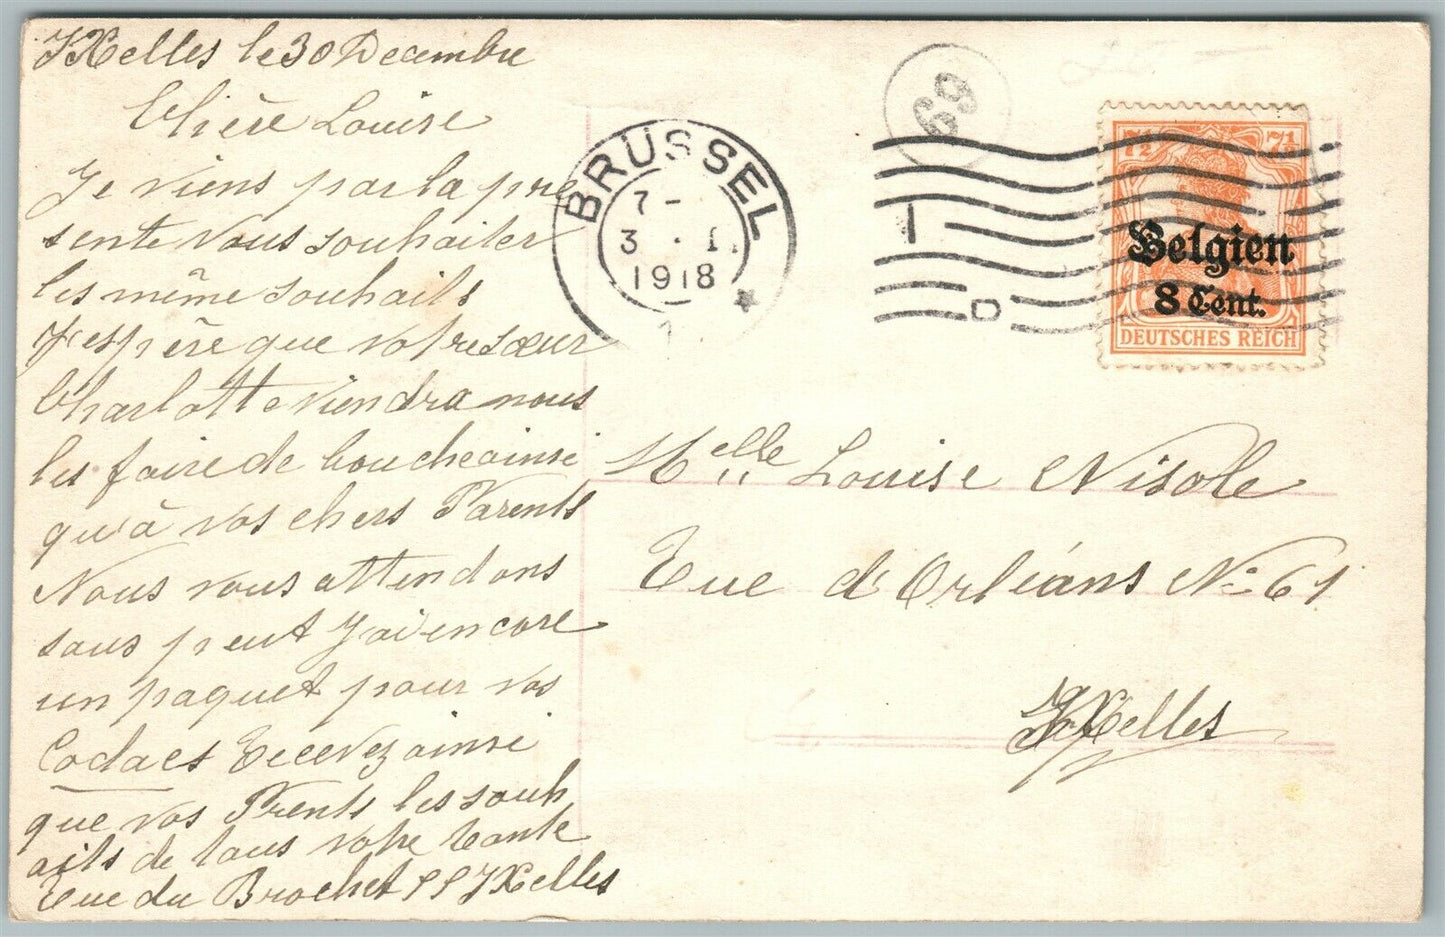 IXelles le 30 Decembre
Chère Louise
Je viens par la pre
sente vous souhaiter
les même souhaits
J'espère que votre sœur
Charlotte viendra nous
les faire de bouche ainsi
qu'à vos chers Parents
Nous vous attendons
sans peut J'ai encore
un paquet pour vos
Codacs Recevez ainsi
que vos Prents les souh
aits de tous votre tante
Rue du Brochet 55 IXelles
BRÜSSEL
7-
3 . 1.
1918
1
69
7½ 7½
Belgien
8 Cent.
DEUTSCHES REICH
Melle Louise Nisole
Rue d'Orléans No 61
IXelles